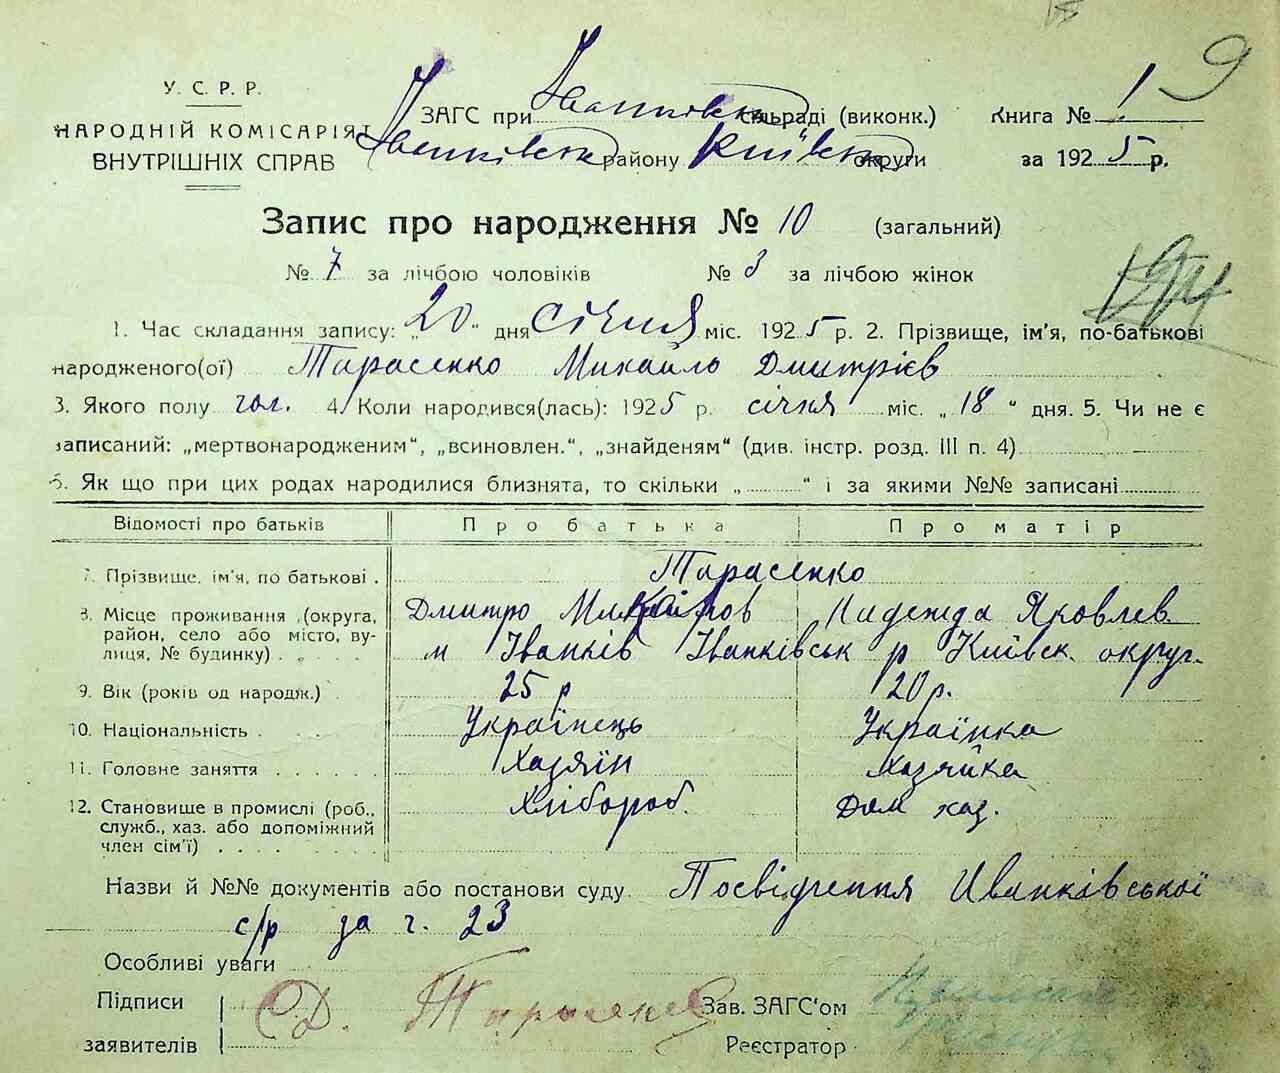 9
У. С. Р. Р.
НАРОДНІЙ КОМІСАРІЯТ
ВНУТРІШНІХ СПРАВ
ЗАГС при Іванківськ сільраді (виконк.)
Іванківськ району Київськ округи
Книга № 1
за 1925 р.
Запис про народження № 10 (загальний)
№ 7 за лічбою чоловіків № 3 за лічбою жінок
1. Час складання запису: „20" дня січня міс. 1925 р. 2. Прізвище, ім'я, по-батькові
народженого(ої) Тарасенко Михайло Дмитрієв
3. Якого полу чол. 4. Коли народився(лась): 1925 р. січня міс. „18" дня. 5. Чи не є
записаний: „мертвонародженим", „всиновлен.", „знайденям" (див. інстр. розд. III п. 4)
6. Як що при цих родах народилися близнята, то скільки „ " і за якими №№ записані
Відомості про батьків Про батька Про матір
7. Прізвище, ім'я, по батькові. Тарасенко
Дмитро Надежда Яковлев
8. Місце проживання (округа, район, село або місто, вулиця, № будинку) м Іванків Іванківськ р Київск. округ.
9. Вік (років од народж.) 25 р 20 р.
10. Національність Українець Українка
11. Головне заняття Хазяїн Хазяйка
12. Становище в промислі (роб., служб., хаз. або допоміжний член сім'ї) Хлібороб. Дом хаз.
Назви й №№ документів або постанови суду. Посвідчення Иванківської
с/р за ч. 23
Особливі уваги
Підписи заявителів Д. Тарасенко
Зав. ЗАГС'ом
Реєстратор